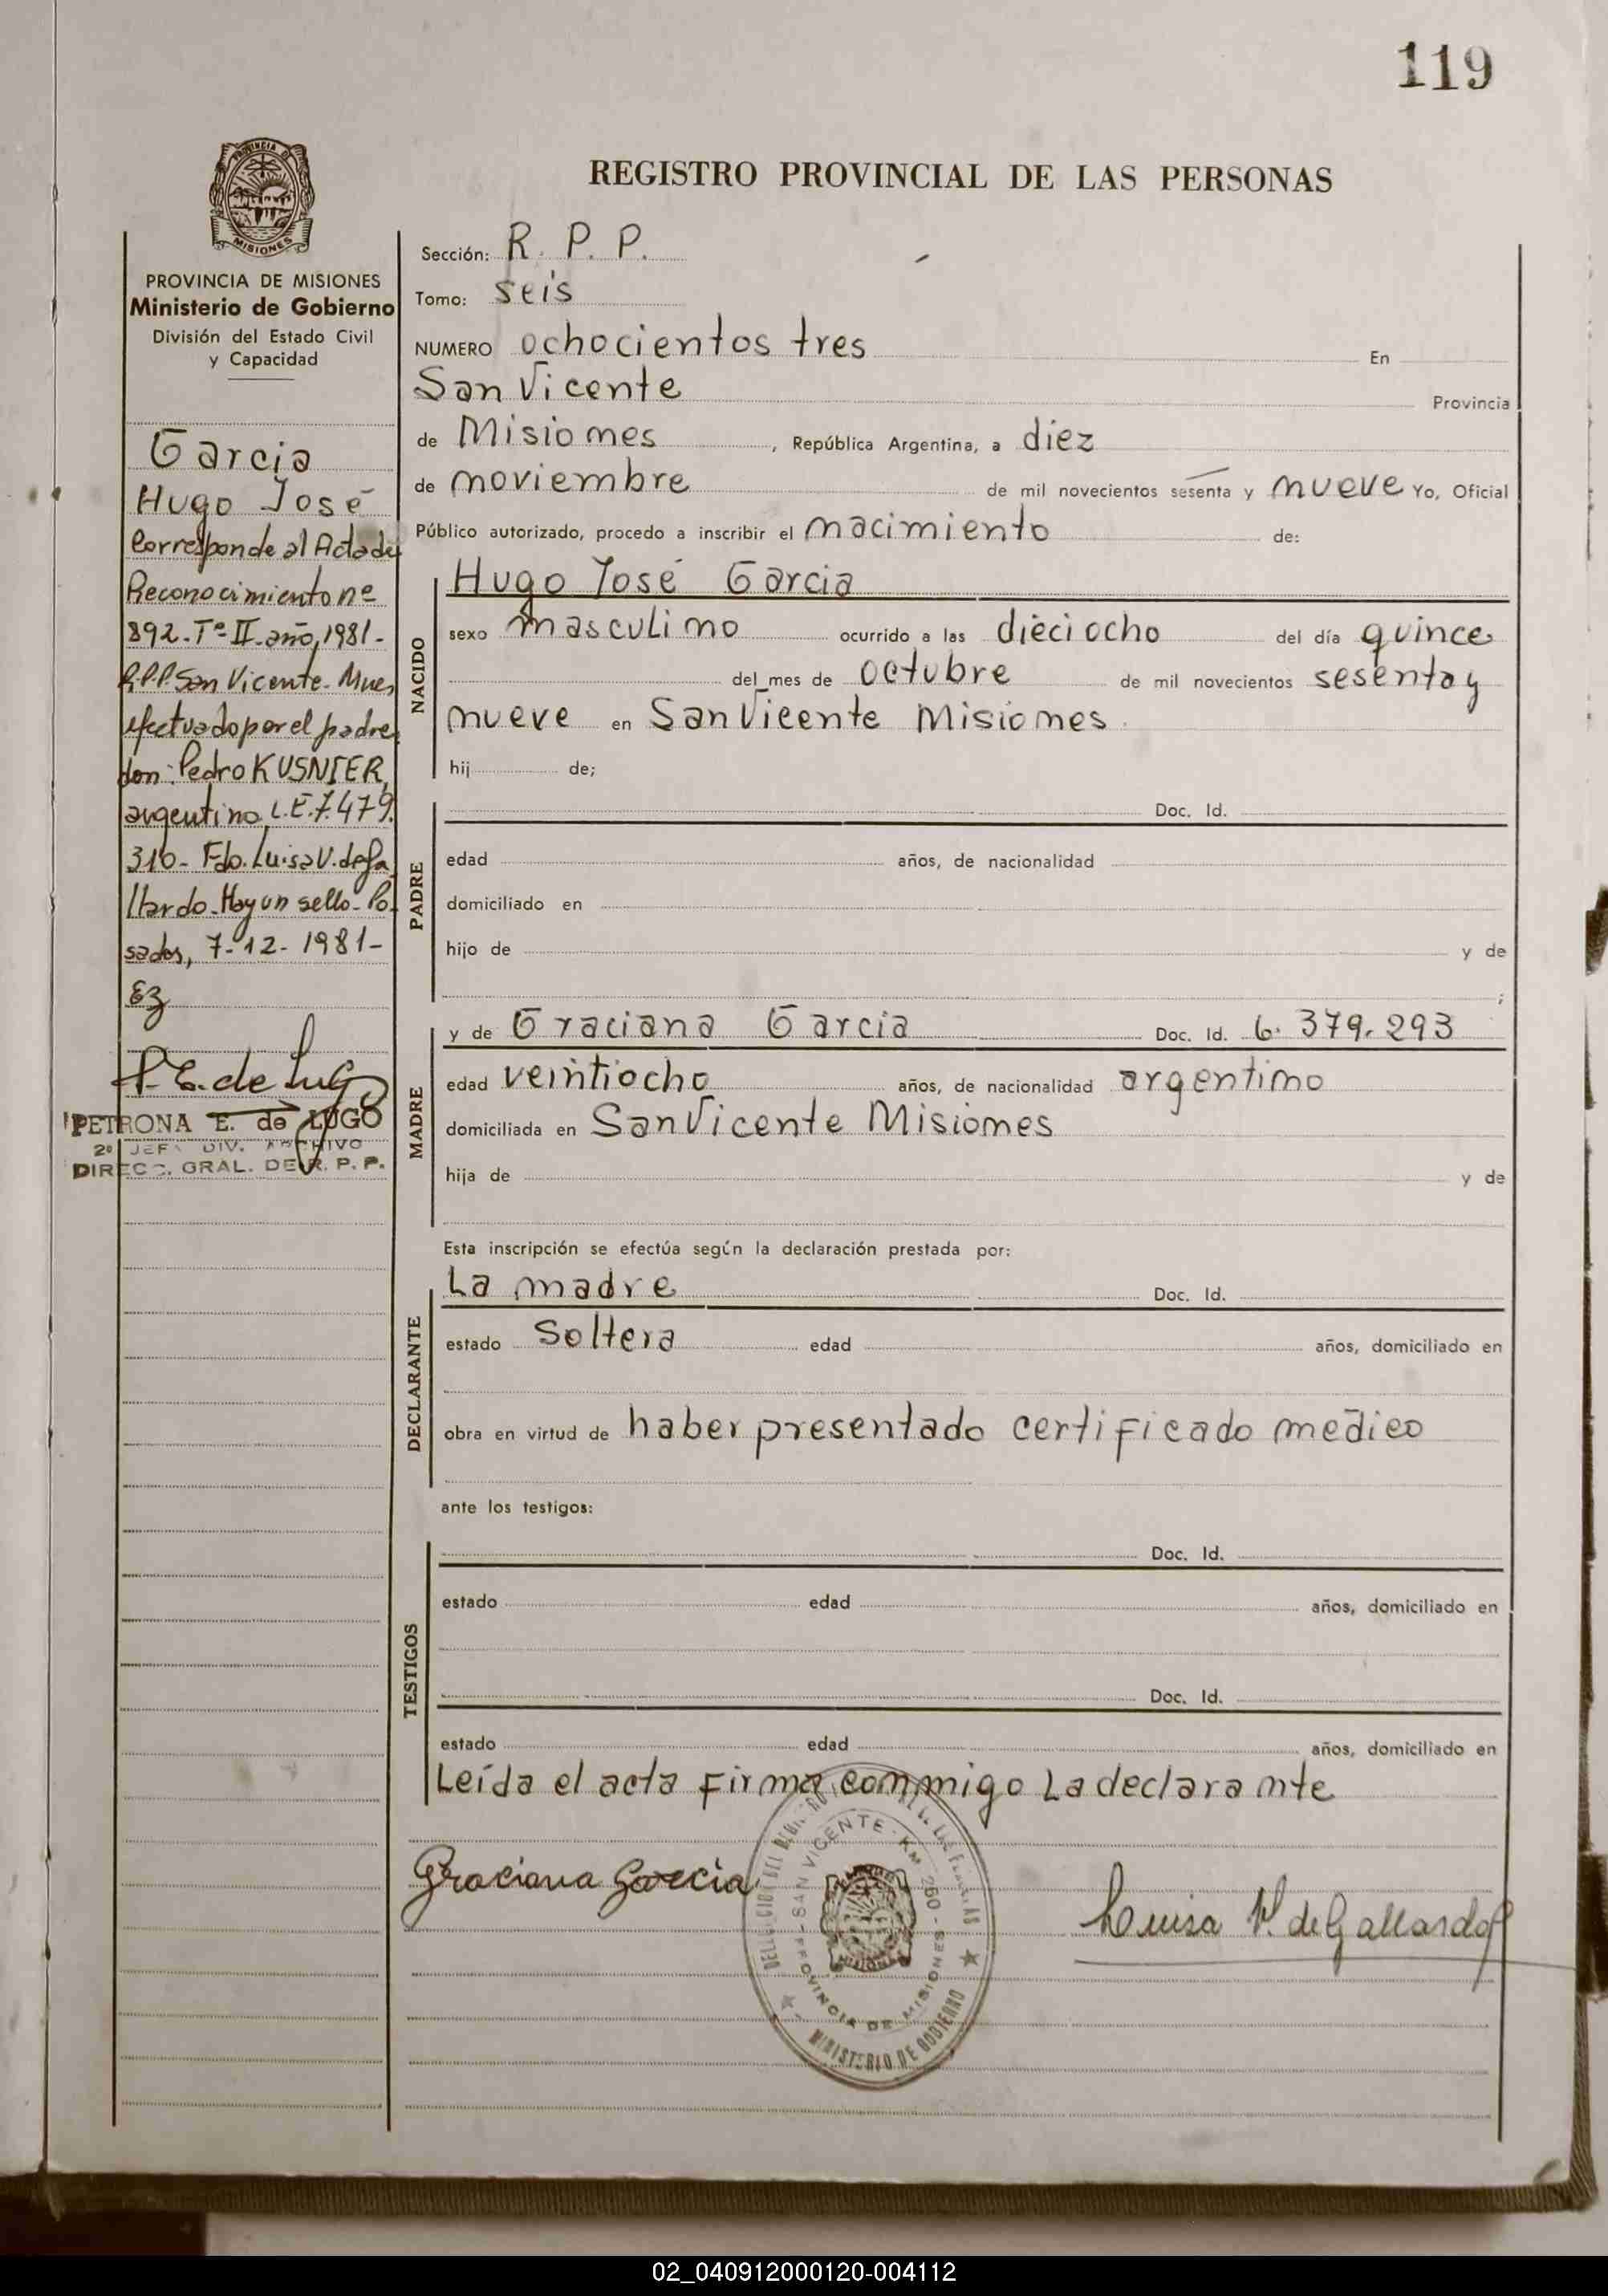 119
PROVINCIA DE
MISIONES
PROVINCIA DE MISIONES
Ministerio de Gobierno
División del Estado Civil
y Capacidad
Garcia
Hugo José
Corresponde al Acta de
Reconocimiento nº
892-Tº-II-año, 1981-
R.P.P. San Vicente-Mnes
efectuado por el padre
don: Pedro KUSNIER,
argentino L.E. 7.479.
310- Fdo. Luisa V. de Ga
llardo-Hay un sello-Po-
sadas, 7-12-1981-
P. E. de Lugo
PETRONA E. de LUGO
2º JEFA DIV. ARCHIVO
DIRECC. GRAL. DE R. P. P.
REGISTRO PROVINCIAL DE LAS PERSONAS
Sección: R. P. P.
Tomo: seis
NUMERO ochocientos tres En
San Vicente Provincia
de Misiones, República Argentina, a diez
de noviembre de mil novecientos sesenta y nueve Yo, Oficial
Público autorizado, procedo a inscribir el nacimiento de:
NACIDO
Hugo José Garcia
sexo masculino ocurrido a las dieciocho del día quince
del mes de octubre de mil novecientos sesenta y
nueve en San Vicente Misiones
hij de;
PADRE
Doc. Id.
edad años, de nacionalidad
domiciliado en
hijo de y de
;
MADRE
y de Graciana Garcia Doc. Id. 6.379.293
edad veintiocho años, de nacionalidad argentino
domiciliada en San Vicente Misiones
hija de y de
Esta inscripción se efectúa según la declaración prestada por:
DECLARANTE
La madre Doc. Id.
estado Soltera edad años, domiciliado en
obra en virtud de haber presentado certificado medico
ante los testigos:
TESTIGOS
Doc. Id.
estado edad años, domiciliado en
Doc. Id.
estado edad años, domiciliado en
Leída el acta firma conmigo La declarante
Graciana Garcia
Luisa V. de Gallardo
SAN VICENTE - KM 260 -
PROVINCIA DE MISIONES
MINISTERIO DE GOBIERNO
02_040912000120-004112